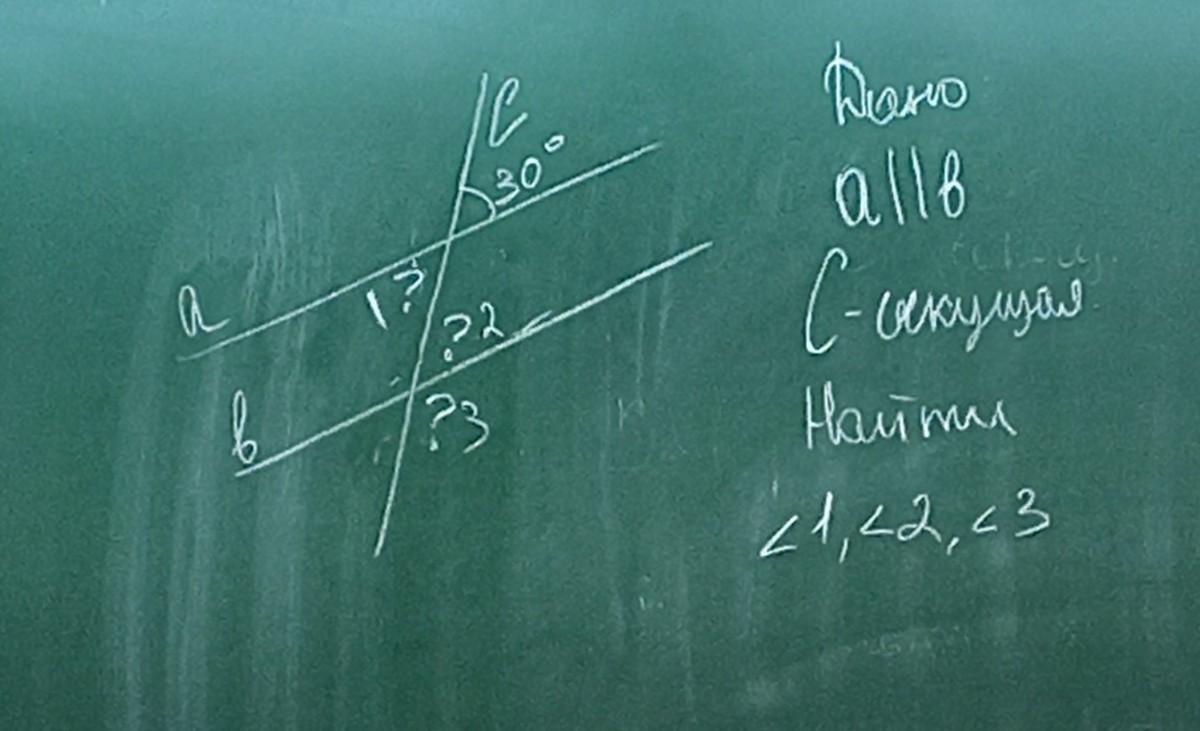 C
30°
a
1?
?2
в
?3
Дано
a||в
C-секущая
Найти
<1,<2,<3